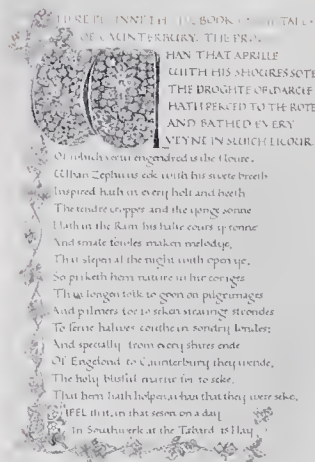 HERE BEGINNETH THE BOOK OF THE TALES
OF CAUNTERBURY. THE PRO
WHAN THAT APRILLE
WITH HIS SHOURES SOTE
THE DROGHTE OF MARCHE
HATH PERCED TO THE ROTE
AND BATHED EVERY
VEYNE IN SWICH LICOUR,
Of which vertu engendred is the flour,
Whan Zephirus eek with his swete breeth
Inspired hath in every holt and heeth
The tendre croppes and the yonge sonne
Hath in the Ram his halve cours y ronne
And smale fowles maken melodye,
That slepen al the night with open ye,
So priketh hem nature in hir corages
Than longen folk to goon on pilgrimages
And palmers for to seken straunge strondes
To ferne halwes couthe in sondry londes;
And specially from every shires ende
Of Engelond to Caunterbury they wende,
The holy blisful martir for to seke,
That hem hath holpen whan that they were seke.
BIFEL that, in that seson on a day
In Southwerk at the Tabard as I lay